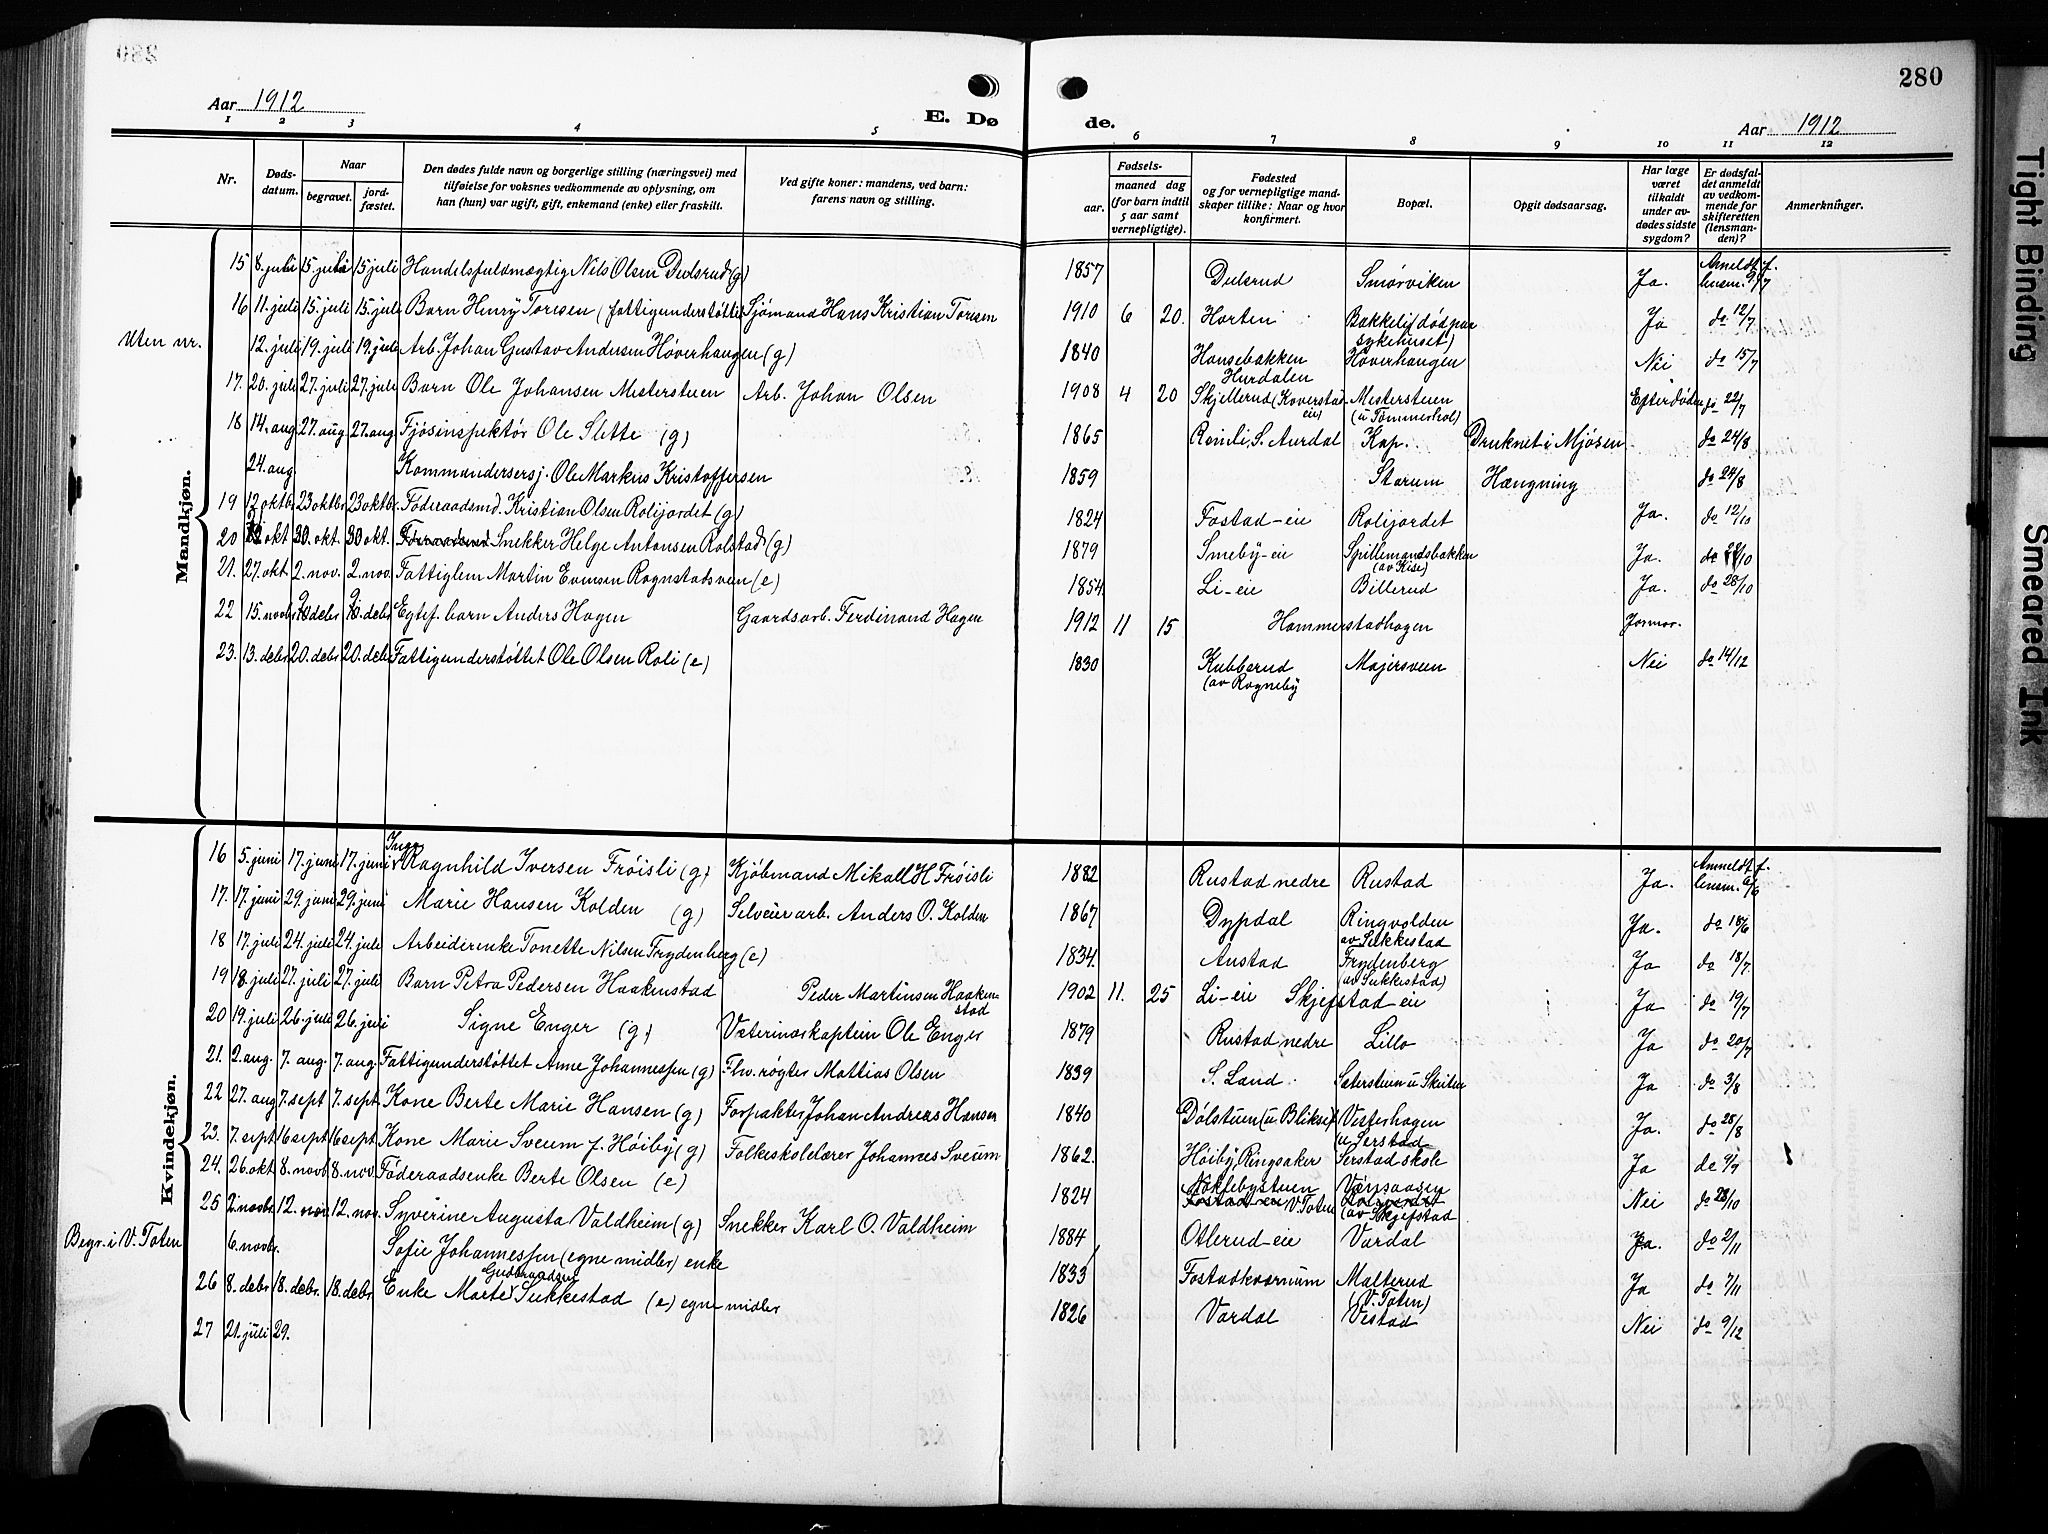 280
Aar 1912
E. Dø
de.
Aar 1912
280
1 2 3 4 5 6 7 8 9 10 11 12
Nr.
Døds-datum.
Naar
begravet.
jord-fæstet.
Den dødes fulde navn og borgerlige stilling (næringsvei) med
tilføielse for voksnes vedkommende av oplysning, om
han (hun) var ugift, gift, enkemand (enke) eller fraskilt.
Ved gifte koner: mandens, ved barn:
farens navn og stilling.
Fødsels-
aar.
maaned dag
(for barn indtil
5 aar samt
vernepligtige).
Fødested
og for vernepligtige mand-
skaper tillike: Naar og hvor
konfirmert.
Bopæl.
Opgit dødsaarsag.
Har læge
været
tilkaldt
under av-
dødes sidste
sygdom?
Er dødsfal-
det anmeldt
av vedkom-
mende for
skifteretten
(lensman-
den)?
Anmerkninger.
Mandkjøn.
15 8. juli 15. juli 15 juli Handelsfuldmægtig Nils Olsen Dulsrud (g) 1857 Dulsrud Smørviken Ja. Anmeldt f. lensm. 9/7
16 11. juli 15. juli 15. juli Barn Henry Toresen (fattigunderstøttet Sjømand Hans Kristian Toresen 1910 6 20. Horten Bakkeli (død paa sykehuset) Ja do 12/7
Uten nr. 12. juli 19. juli 19. juli Arb. Johan Gustav Andersen Høverhaugen (g) 1840 Hansebakken Hurdalen Høverhaugen Nei do 15/7
17. 20. juli 27. juli 27. juli Barn Ole Johansen Mesterstuen Arb. Johan Olsen 1908 4 20 Skjellerud (Koverstad-eie) Mesterstuen (u Tømmerhol) Efter døden do 22/7
18 14. aug 27. aug 27. aug Fjøsinspektør Ole Slette (g) 1865 Reinli, S. Aurdal Kap. Druknet i Mjøsen do 24/8
24. aug. Kommandersersj. Ole Markus Kristoffersen 1859 Starum Hængning do 24/8
19 12 oktbr. 23 oktbr. 23 oktbr. Føderaadsmd. Kristian Olsen Rolijordet (g) 1824 Fostad-eie Rolijordet Ja. do 12/10
20 22 okt 30. okt. 30 okt. Føderaadsmd Snekker Helge Antonsen Rolstad (g) 1879 Smeby-eie Spillemandsbakken (av Kise) Ja. do 22/10
21. 27. okt. 2. nov. 2. nov. Fattiglem Martin Evensen Rognstadsveen (e) 1854. Li-eie Billerud Ja. do 28/10
22 15. novbr. 9 debr 9. debr. Egtef. barn Anders Hagen Gaardsarb. Ferdinand Hagen 1912 11 15 Hammerstadhagen Jormor.
23. 13. debr 20. debr 20. debr Fattigunderstøttet Ole Olsen Roli (e) 1830 Kubberud (av Rogneby Majersveen Nei do 14/12
Kvindekjøn.
16 5. juni 17. juni 17. juni Inga Ragnhild Iversen Frøisli (g) Kjøbmand Mikael H Frøisli 1882 Rustad nedre Rustad Ja. Anmeldt f. lensm. 6/6
17. 17. juni 29. juni 29. juni Marie Hansen Kolden (g) Selveierarb. Anders O. Kolden 1867 Dypdal Ringvolden av Sukkestad Ja. do 18/6
18 17. juli 24. juli 24. juli Arbeiderenke Tonette Nilsen Frydenberg (e) 1834. Austad Frydenberg (av Sukkestad) Ja do 18/7.
19 18. juli 27. juli 27. juli Barn Petra Pedersen Haakenstad Peder Martinsen Haakenstad 1902 11. 25 Li-eie Skjefstad-eie Ja do 19/7
20 19. juli 26. juli 26. juli Signe Enger (g) Veterinærkaptein Ole Enger 1879 Rustad nedre Lillo Ja do 20/7
21. 2. aug. 7. aug. 7. aug. Fattigunderstøttet Anne Johannessen (g) Flv. røgter Mattias Olsen 1839 S. Land Sætersteuen u Skuten Ja do 3/8
22 27. aug 7. sept 7. sept. Kone Berte Marie Hansen (g) Forpakter Johan Andreas Hansen 1840 Dølstuen (u Bliksef Vesterhagen (u Serstad Ja. do 28/8
23. 7. sept 16 sept 16 sept. Kone Marie Sveum f. Høiby (g) Folkeskolelærer Johannes Sveum 1862. Høiby, Ringsaker Serstad skole Ja de 9/9
24. 26. okt 8. novb. 8. nov. Føderaadsenke Berte Olsen (e) 1824 Nøklebystuen Fostad-eie V. Toten Værpaasen (av Skjefstad Nei do 28/10
25 2. novbr. 12. nov. 12. nov. Syverine Augusta Valdheim (g) Snekker Karl O. Valdheim 1884 Otlerud-eie Vardal Ja. do 2/11
Begr. i V. Toten 6. novbr. Sofie Johannessen (egne midler) enke 1833 Fostadkværnum Malterud (V. Toten) Ja do 7/11
26 8. debr. 18. debr. 18. debr. Enke Marte Gudbrandsen Sukkestad (e) egne midler 1826 Vardal Vestad Nei do 9/12
27 21. juli 29.
Tight Binding
Smeared Ink